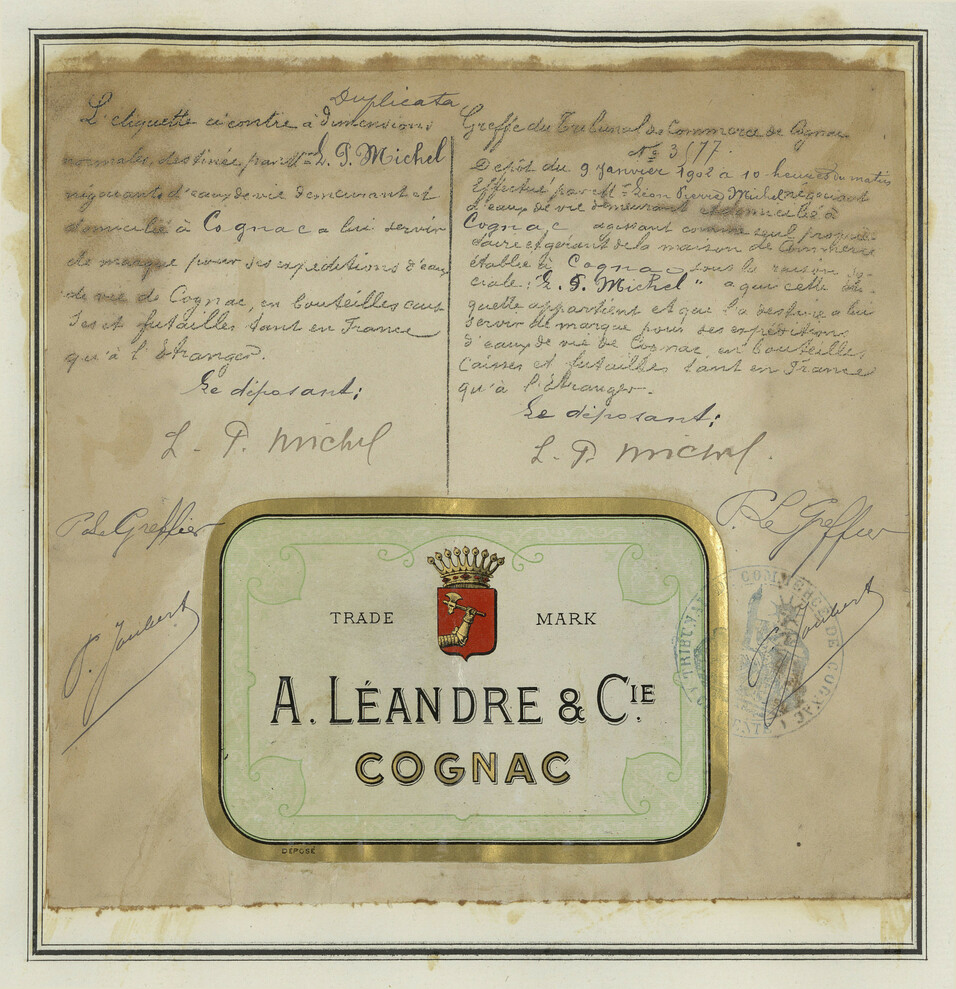 Duplicata
L'étiquette ci contre à dimensions
normales, destinée, par Mr L. P. Michel
négociant d'eaux de vie demeurant et
domicilié à Cognac a lui servir
de marque pour ses expéditions d'eaux
de vie de Cognac, en bouteilles, cais-
ses et futailles tant en France
qu'à l'étranger.
Le déposant:
L. P. Michel
P. Le Greffier
P. Joubert
Greffe du Tribunal de Commerce de Cognac
No 3577.
Dépôt du 9 Janvier 1902 à 10 heures du matin
Effectué par Mr Léon Pierre Michel négociant
d'eaux de vie demeurant et domicilié à
Cognac, agissant comme seul proprié-
taire et gérant de la maison de Commerce
établie à Cognac sous la raison so-
ciale: "L. P. Michel" a qui cette éti-
quette appartient et que l'a destine a lui
servir de marque pour ses expéditions
d'eaux de vie de Cognac, en bouteilles,
Caisses et futailles tant en France
qu'à l'étranger.
Le déposant:
L. P. Michel.
P. Le Greffier
P. Joubert
TRIBUNAL DE COMMERCE DE COGNAC
TRADE MARK
A. LÉANDRE & CIE
COGNAC
DÉPOSÉ